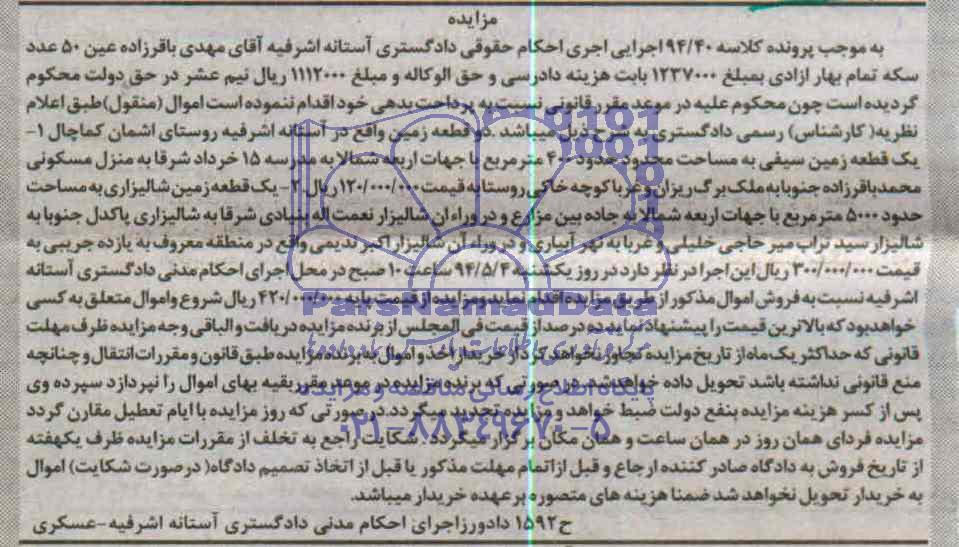 مزایده
به موجب پرونده کلاسه ۹۴/۴۰ اجرایی اجری احکام حقوقی دادگستری آستانه اشرفیه آقای مهدی باقرزاده عین ۵۰ عدد
سکه تمام بهار ازادی بمبلغ ۱۲۳۷۰۰۰ بابت هزینه دادرسی و حق الوکاله و مبلغ ۱۱۱۲۰۰۰ ریال نیم عشر در حق دولت محکوم
گردیده است چون محکوم علیه در موعد مقرر قانونی نسبت به پرداخت بدهی خود اقدام ننموده است اموال (منقول) طبق اعلام
نظریه( کارشناس) رسمی دادگستری به شرح ذیل میباشد .دو قطعه زمین واقع در آستانه اشرفیه روستای اشمان کماچال ۱-
یک قطعه زمین سیفی به مساحت محدود حدود ۴۰۰ مترمربع با جهات اربعه شمالا به مدرسه ۱۵ خرداد شرقا به منزل مسکونی
محمدباقرزاده جنوبا به ملک برگ ریزان و غربا کوچه خاکی روستا به قیمت ۱۲۰/۰۰۰/۰۰۰ ریال ۲- یک قطعه زمین شالیزاری به مساحت
حدود ۵۰۰۰ متر مربع با جهات اربعه شمالا به جاده بین مزارع و در وراء ان شالیزار نعمت اله بنیادی شرقا به شالیزاری پاکدل جنوبا به
شالیزار سید تراب میر حاجی خلیلی و غربا به نهر آبیاری و در وراء ان شالیزار اکبر ندیمی واقع در منطقه معروف به یازده جریبی به
قیمت ۳۰۰/۰۰۰/۰۰۰ ریال این اجرا در نظر دارد در روز یکشنبه ۹۴/۵/۴ ساعت ۱۰ صبح در محل اجرای احکام مدنی دادگستری آستانه
اشرفیه نسبت به فروش اموال مذکور از طریق مزایده اقدام نماید ومزایده از قیمت پایه ۴۲۰/۰۰۰/۰۰۰ ریال شروع واموال متعلق به کسی
خواهدبود که بالاترین قیمت را پیشنهاد نماید ده درصد از قیمت فی المجلس از برنده مزایده دریافت و الباقی وجه مزایده ظرف مهلت
قانونی که حداکثر یک ماه از تاریخ مزایده تجاوز نخواهد کرد از خریدار اخذ و اموال به برنده مزایده طبق قانون و مقررات انتقال و چنانچه
منع قانونی نداشته باشد تحویل داده خواهد شد. در صورتی که برنده مزایده در موعد مقرر بقیه بهای اموال را نپردازد سپرده وی
پس از کسر هزینه مزایده بنفع دولت ضبط خواهد و مزایده تجدید میگردد.در صورتی که روز مزایده با ایام تعطیل مقارن گردد
مزایده فردای همان روز در همان ساعت و همان مکان برگزار میگردد . شکایت راجع به تخلف از مقررات مزایده ظرف یکهفته
از تاریخ فروش به دادگاه صادر کننده ارجاع و قبل ازاتمام مهلت مذکور یا قبل از اتخاذ تصمیم دادگاه( درصورت شکایت) اموال
به خریدار تحویل نخواهد شد ضمنا هزینه های متصوره بر عهده خریدار میباشد.
ح۱۵۹۲ دادورزاجرای احکام مدنی دادگستری آستانه اشرفیه-عسکری
ParsNamadData
پایگاه اطلاع رسانی مناقصه و مزایده
۰۲۱-۸۸۳۴۹۶۷۰-۵